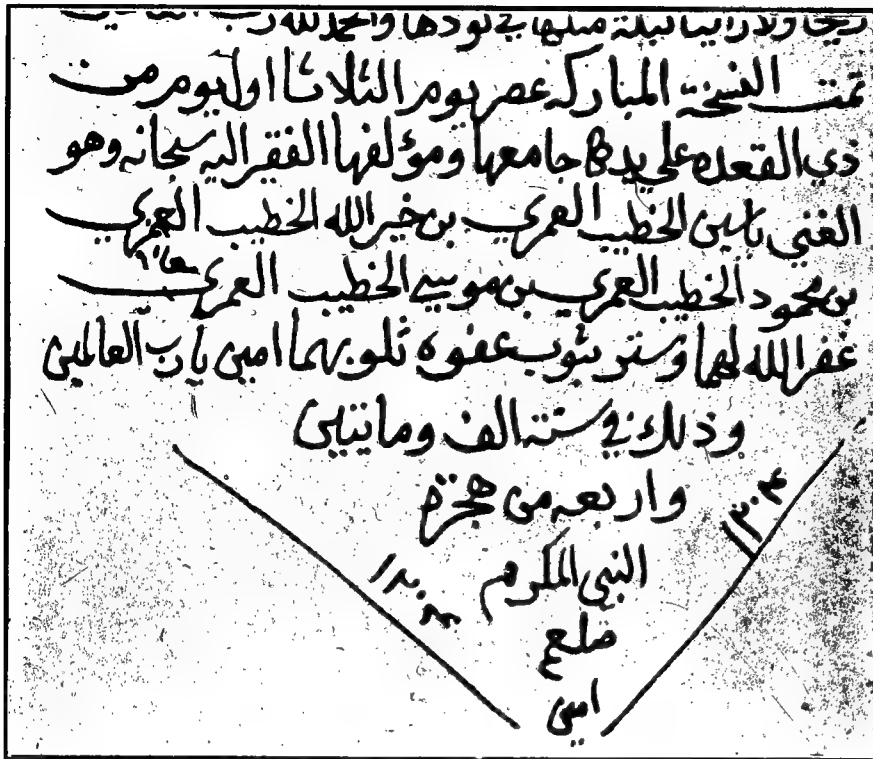 ريحا ولا راينا ليلة مثلها في والحمد لله رب
تمت النسخة المباركه عصر يوم الثلاثا اول يوم من
ذي القعده علي يد جامعها ومؤلفها الفقير اليه سبحانه وهو
الغني ياسين الخطيب العمري بن خير الله الخطيب العمري
بن محمود الخطيب العمري بن موسى الخطيب العمري
غفر الله لهما وستر بثوب عفوه ذنوبهما امين يا رب العالمين
وذلك في سنة الف وماتيين
واربعه من هجرة
١٢٠٤
النبي المكرم
١٢٠٤
صلعم
امين